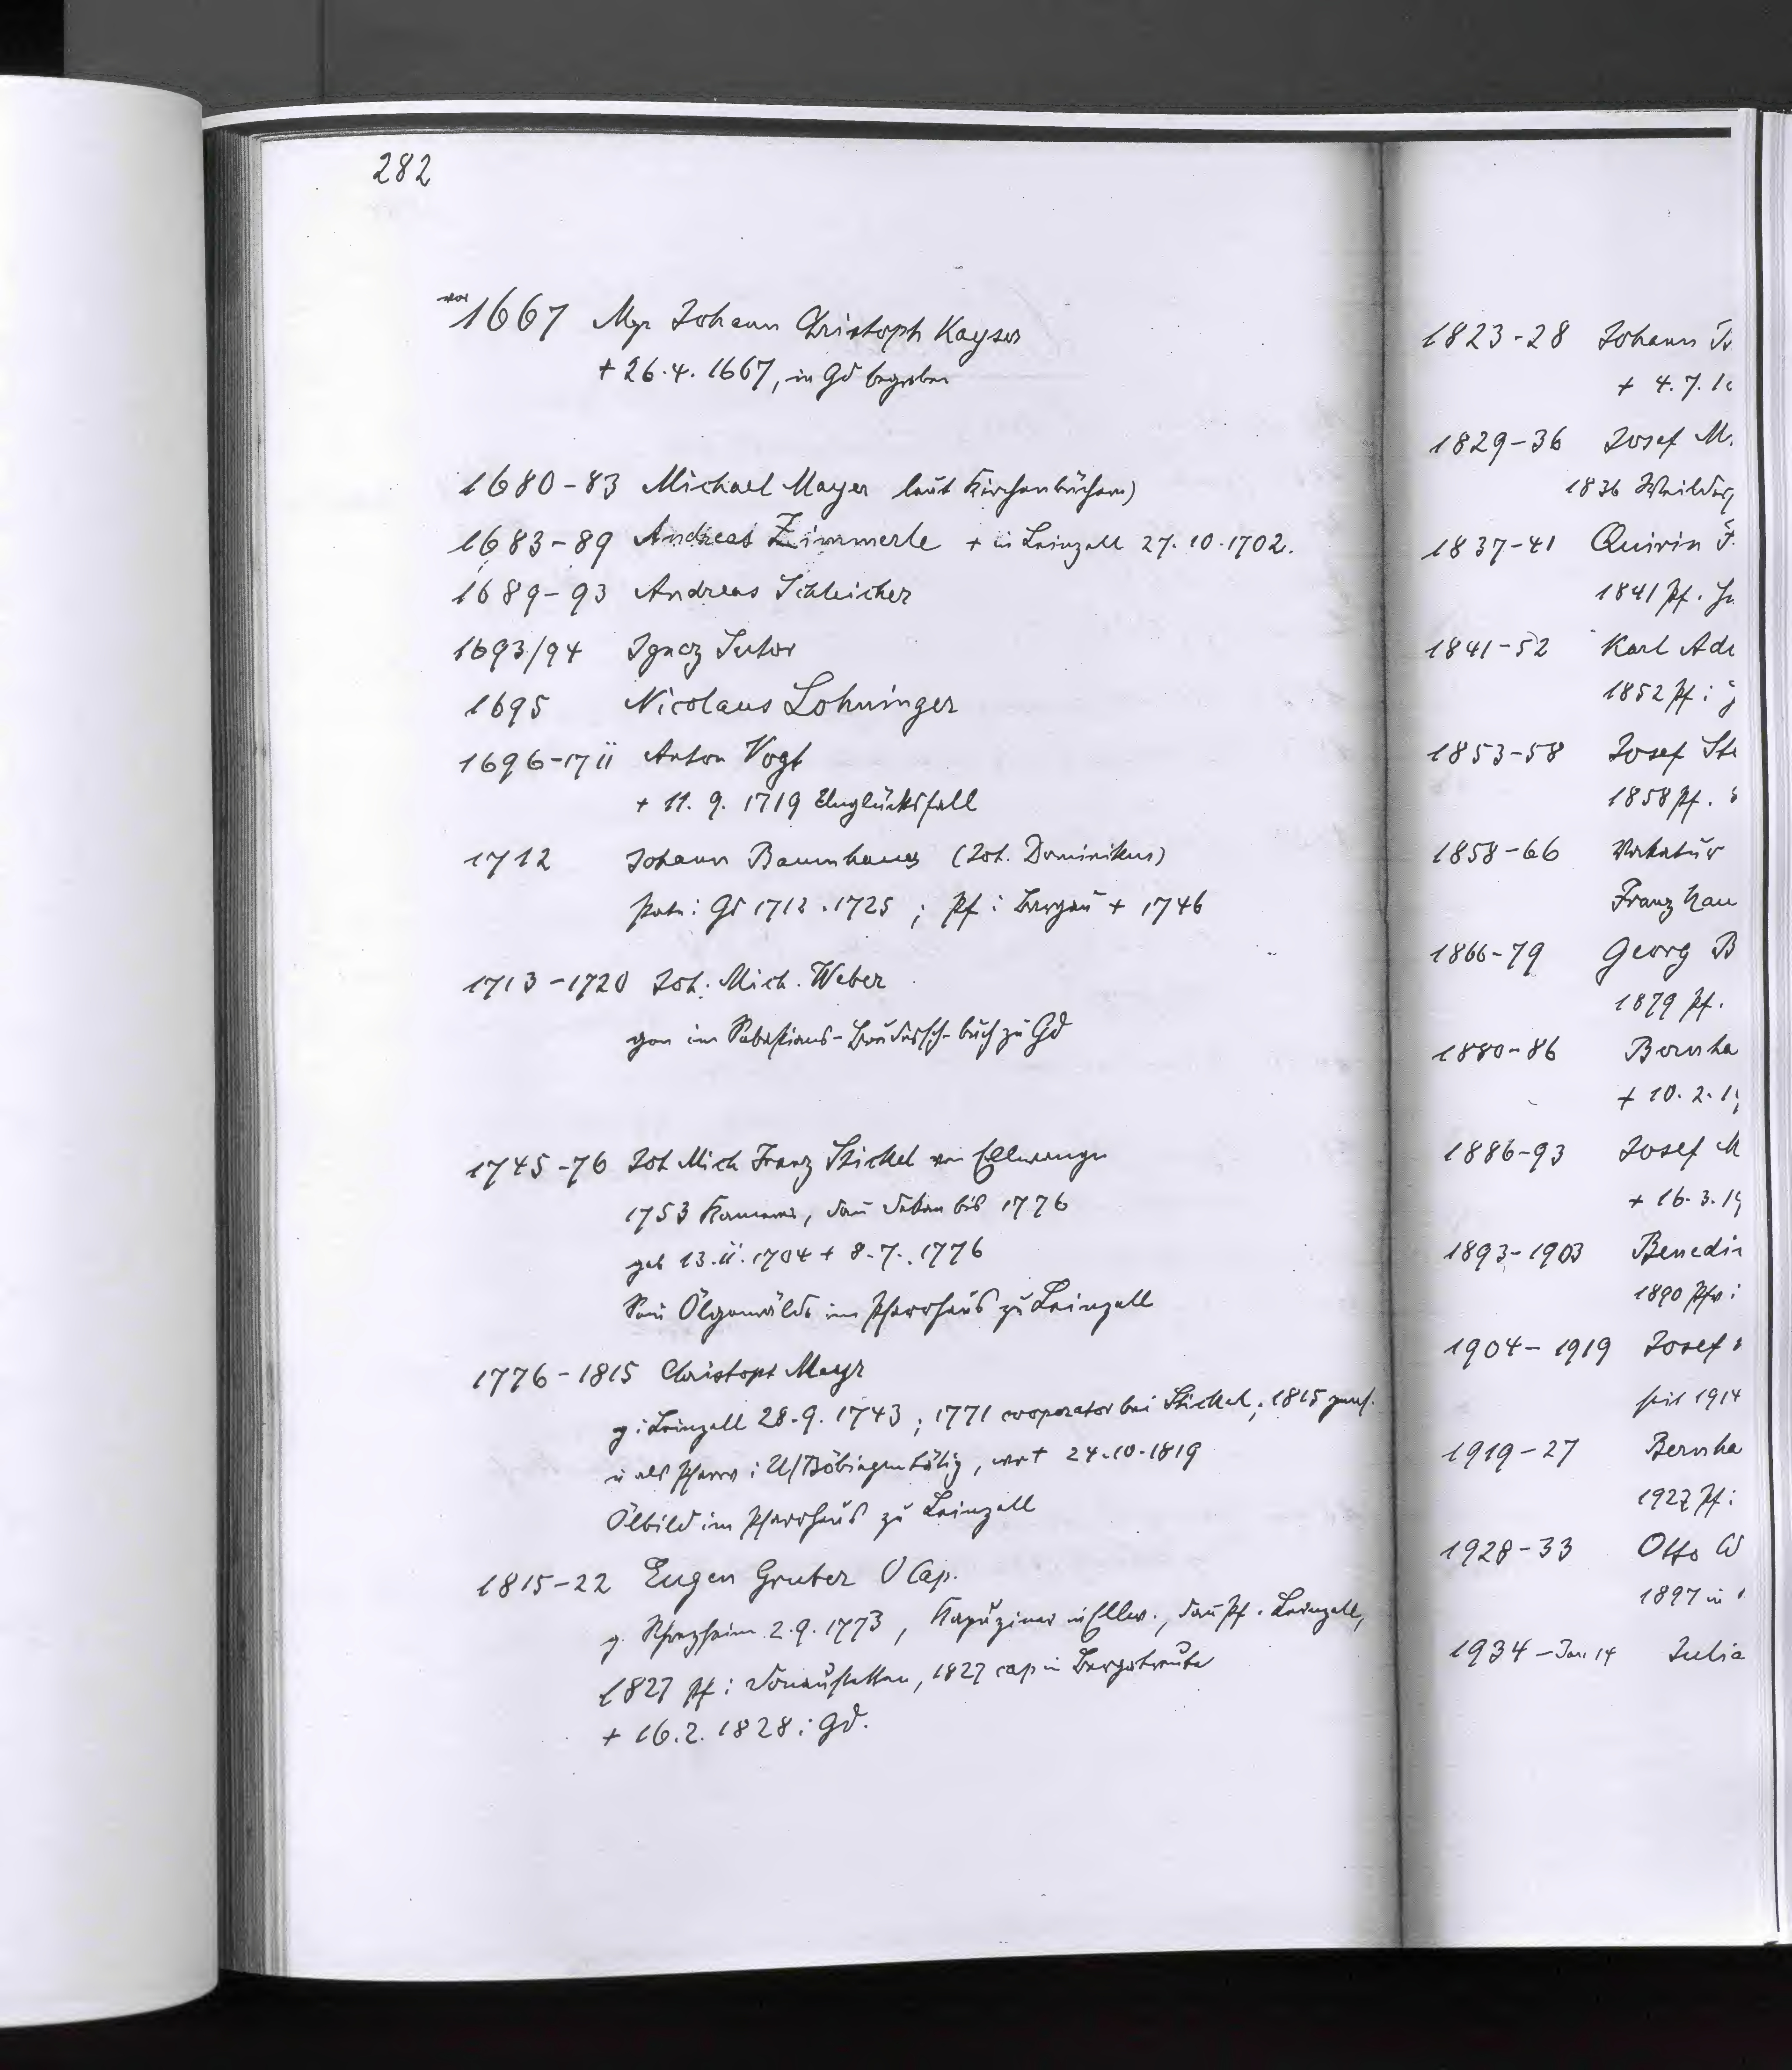 282
vor 1667 Mgr Johann Christoph Kayser
+ 26.4.1667, in Gd begraben
1680-83 Michael Mayer laut Kirchenbüchern)
1683-89 Andreas Zimmerle + in Leinzell 27.10.1702.
1689-93 Andreas Schleicher
1693/94 Ignaz Sutor
1695 Nicolaus Lohninger
1696-1711 Anton Vogt
+ 11.9.1719 Unglücksfall
1712 Johann Baumhauer (Joh. Dominikus)
Gd 1712.1725; Pf i Bargau + 1746
1713-1720 Joh. Mich. Weber
gen im Sebastians-Brudersch-buch zu Gd
1745-76 Joh Mich Franz Stickel von Ellwangen
1753 Kammerer, dann Dekan bis 1776
geb 13.11.1704 + 8.7.1776
Sein Ölgemälde im Pfarrhaus zu Leinzell
1776-1815 Christoph Mayr
g i Leinzell 28.9.1743; 1771 cooperator bei Stickel; 1815
u als Pfarrer i U/Böbingen tätig, wo + 24.10.1819
Ölbild im Pfarrhaus zu Leinzell
1815-22 Eugen Gruber O Cap.
g. 2.9.1773, Kapuziner in Ellw., dann Pf. Leinzell,
1827 Pf i Donaustetten, 1827 cap in Bergatreute
+ 16.2.1828 i Gd.
1823-28 Johann
+ 4.7.
1829-36 Josef M
1836
1837-41 Quirin
1841 Pf.
1841-52 Karl Ad
1852 Pf i
1853-58 Josef St
1858 Pf.
1858-66 Vakatur
Franz
1866-79 Georg B
1879 Pf.
1880-86 Bernha
+ 10.2.1
1886-93 Josef M
+ 16.3.1
1893-1903 Benedi
1890 Pfr i
1904-1919 Josef
seit 1914
1919-27 Bernha
1927 Pf i
1928-33 Otto W
1897 in
1934 - Jan 14 Julia